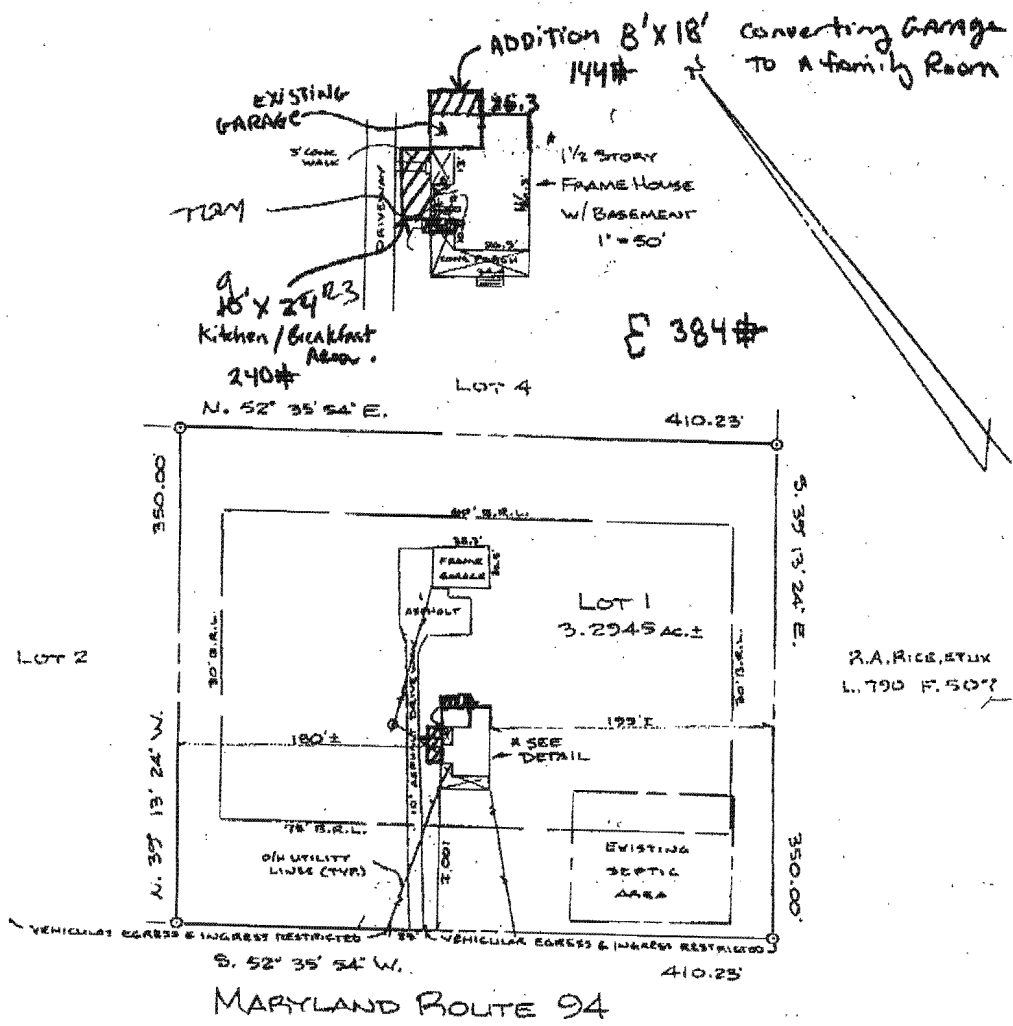 ADDITION 8'X18' Converting GARAGE
144# TO A family Room
EXISTING
GARAGE
26.3
3' CONC
WALK
13'
1½ STORY
FRAME HOUSE
W/ BASEMENT
1" = 50'
DRIVEWAY
CONC PORCH
Kitchen / Breakfast
Area.
240#
Σ 384#
LOT 4
N. 52° 35' 54" E.
410.23'
350.00'
S. 39° 13' 24" E.
B.R.L.
FRAME
GARAGE
ASPHALT
LOT 1
3.2945 AC.±
LOT 2
30' B.R.L.
30' B.R.L.
R.A. RICE, ETUX
L. 790 F. 507
10' ASPHALT DRIVEWAY
180'±
199'±
* SEE
DETAIL
N. 39° 13' 24" W.
75' B.R.L.
O/H UTILITY
LINES (TYP.)
100'±
EXISTING
SEPTIC
AREA
350.00'
VEHICULAR EGRESS & INGRESS RESTRICTED
VEHICULAR EGRESS & INGRESS RESTRICTED
S. 52° 35' 54" W.
410.23'
MARYLAND ROUTE 94